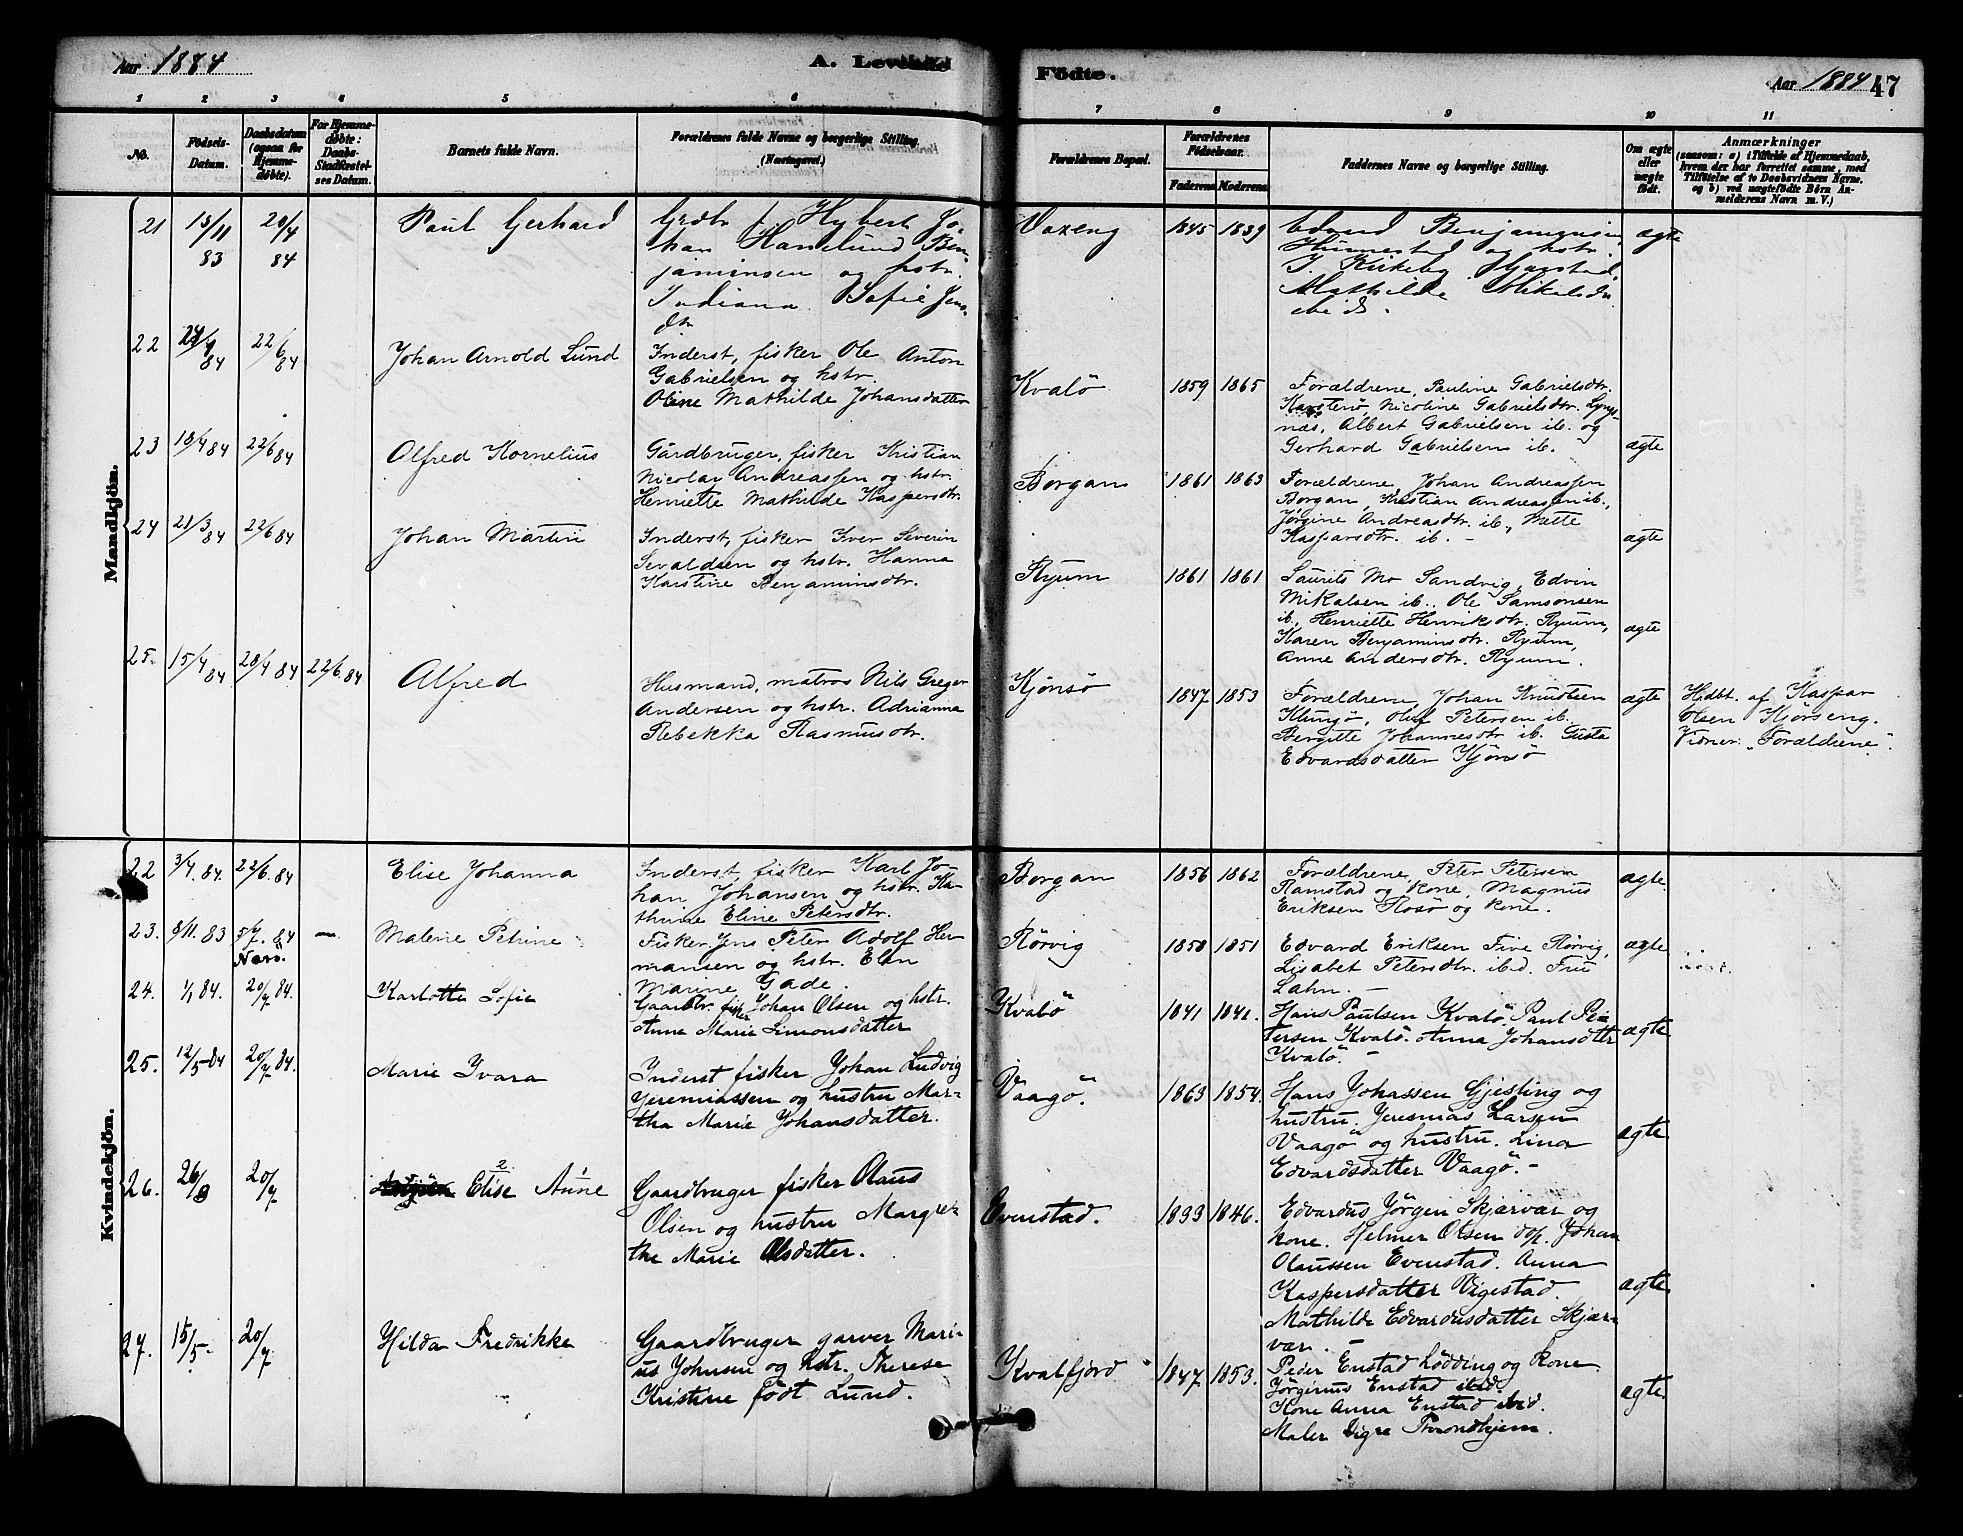 Aar 1884
A. Levende
Födte.
Aar 1884 47
1 2 3 4 5 6 7 8 9 10 11
No.
Födsels-Datum.
Daabsdatum (ogsaa for Hjemmedöbte).
For Hjemmedöbte: Daabs-Stadfæstelses Datum.
Barnets fulde Navn.
Forældrenes fulde Navne og borgerlige Stilling.
Forældrenes Bopæl.
Forældrenes Födselsaar.
Faderens Moderens
Faddernes Navne og borgerlige Stilling.
Om ægte eller uægte födt.
Anmærkninger
(saasom: a) i Tilfælde af Hjemmedaab,
hvem der har forrettet samme, med
Tilföielse af to Daabsvidners Navne.
og b) ved uægtefödte Børn An-
melderens Navn m. V.)
Mandkjön.
21 13/11 83 20/4 84 Paul Gerhard
Hybert Jo-
han Hanslund Ben-
jaminsen og hstr.
Indiana Sofie Jens-
dtr
Vaxeng 1845 1839
Edvard Benjaminsen
Hunnestad og hstr.
J. Kirkeby Harstad,
Mathilde Mikalsdtr
ibid.
ægte
22 84 22/6 84 Johan Arnold Lund
Inderst, fisker Ole Anton
Gabrielsen og hstr.
Oline Mathilde Johansdatter
Kvalö 1859 1865
Forældrene, Pauline Gabrielsdtr.
Karstenö, Nicoline Gabrielsdtr. Lyngs-
næs, Albert Gabrielsen ib. og
Gerhard Gabrielsen ib.
ægte
23 18/4 84 22/6 84 Alfred Kornelius
Gårdbruger, fisker Kristian
Nicolai Andreassen og hstr.
Henriette Mathilde Kaspersdtr.
Borgan 1861 1863
Forældrene, Johan Andreassen
Borgan, Kristian Andreassen ib.,
Jörgine Andreasdtr. ib., Mette
Kaspersdtr. ib. -
ægte
24 21/3 84 22/6 84 Johan Martin
Inderst, fisker Iver Severin
Sevaldsen og hstr. Hanna
Karstine Benjaminsdtr.
Ryum 1861 1861
Laurits Mo Sandvig, Edvin
Mikalsen ib., Ole Samsonsen
ib., Henriette Henriksdtr. Ryum,
Karen Benjaminsdtr. Ryum,
Anne Andersdtr. Ryum.
ægte
25. 15/4 84 28/4 84 22/6. 84 Alfred
Husmand, matros Nils Greger
Andersen og hstr. Adrianna
Rebekka Rasmusdtr.
Kjönsö 1847 1853
Forældrene, Johan Knudsen
Klungö, Oluf Petersen ib.
Bergitte Johannesdtr ib. Gusta
Edvardsdatter Kjönsö
ægte
Hjdbt. af Kaspar
Olsen Kjörseng.
Vidner: "Forældrene".
Kvindekjön.
22 3/4. 84. 22/6. 84 Elise Johanna
Inderst, fisker Karl Jo-
han Johansen og hstr. Ka-
thrine Eline Petersdtr.
Borgan 1856 1862
Forældrene, Peter Petersen
Ramstad og kone, Magnus
Eriksen Rosö og kone.
ægte.
23. 8/11. 83 5/7. 84 Nærö. — Malene Petrine
Fisker Jens Peter Adolf Her-
mansen og hstr. Elen
Marine Gade.
Rörvig 1850 1851
Edvard Eriksen Five Rörvig,
Lisabet Petersdtr. ibid. Fru
Lahn. —
ægte
24. 1/1 84. 20/7 84. Karlotte Sofie
Gaardbr. fisker Johan Olsen og hstr.
Anne Marie Simonsdatter
Kvalö 1841 1841.
Hans Paulsen Kvalö, Paul Pe-
tersen Kvalö. Anna Johansdtter
Kvalö. —
ægte
25. 12/5 84 20/7 84. Marie Ivara
Inderst fisker Johan Ludvig
Jeremiassen og hustru Mar-
tha Marie Johansdatter.
Vaagö. 1863 1854.
Hans Johassen Gjesling og
hustru. Jeremias Larsen
Vaagö og hustru. Lina
Edvardsdatter Vaagö. -
ægte
26. 26/3 20/7 Elise Anne
Gaardbruger fisker Olaus
Olsen og hustru Margre-
the Marie Olsdatter.
Evenstad. 1833 1846.
Edvardus Jörgen Skjærvær og
kone. Helmer Olsen dop. Johan
Olaussen Evenstad. Anna
Kaspersdatter Vigestad.
Mathilde Edvardusdatter Skjær-
vær.
ægte
27. 15/5. 20/7 Hilda Fredrikke
Gaardbruger garver Mari-
us Johnsen og hstr. Therese
Kristine födt Lund.
Kvalfjord 1847 1853.
Peder Enstad Lödding og Kone
Jörginus Enstad ibid.
Kone Anna Enstad ibid.
Maler Digre Trondhjem.
ægte